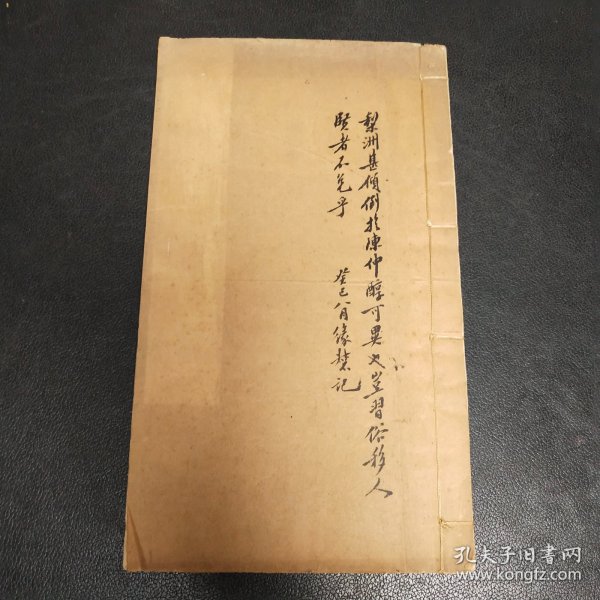 梨洲甚傾倒於陳仲醇可異也豈習俗移人
賢者不免乎
癸巳八月緣督記
孔夫子旧书网
www.kongfz.com